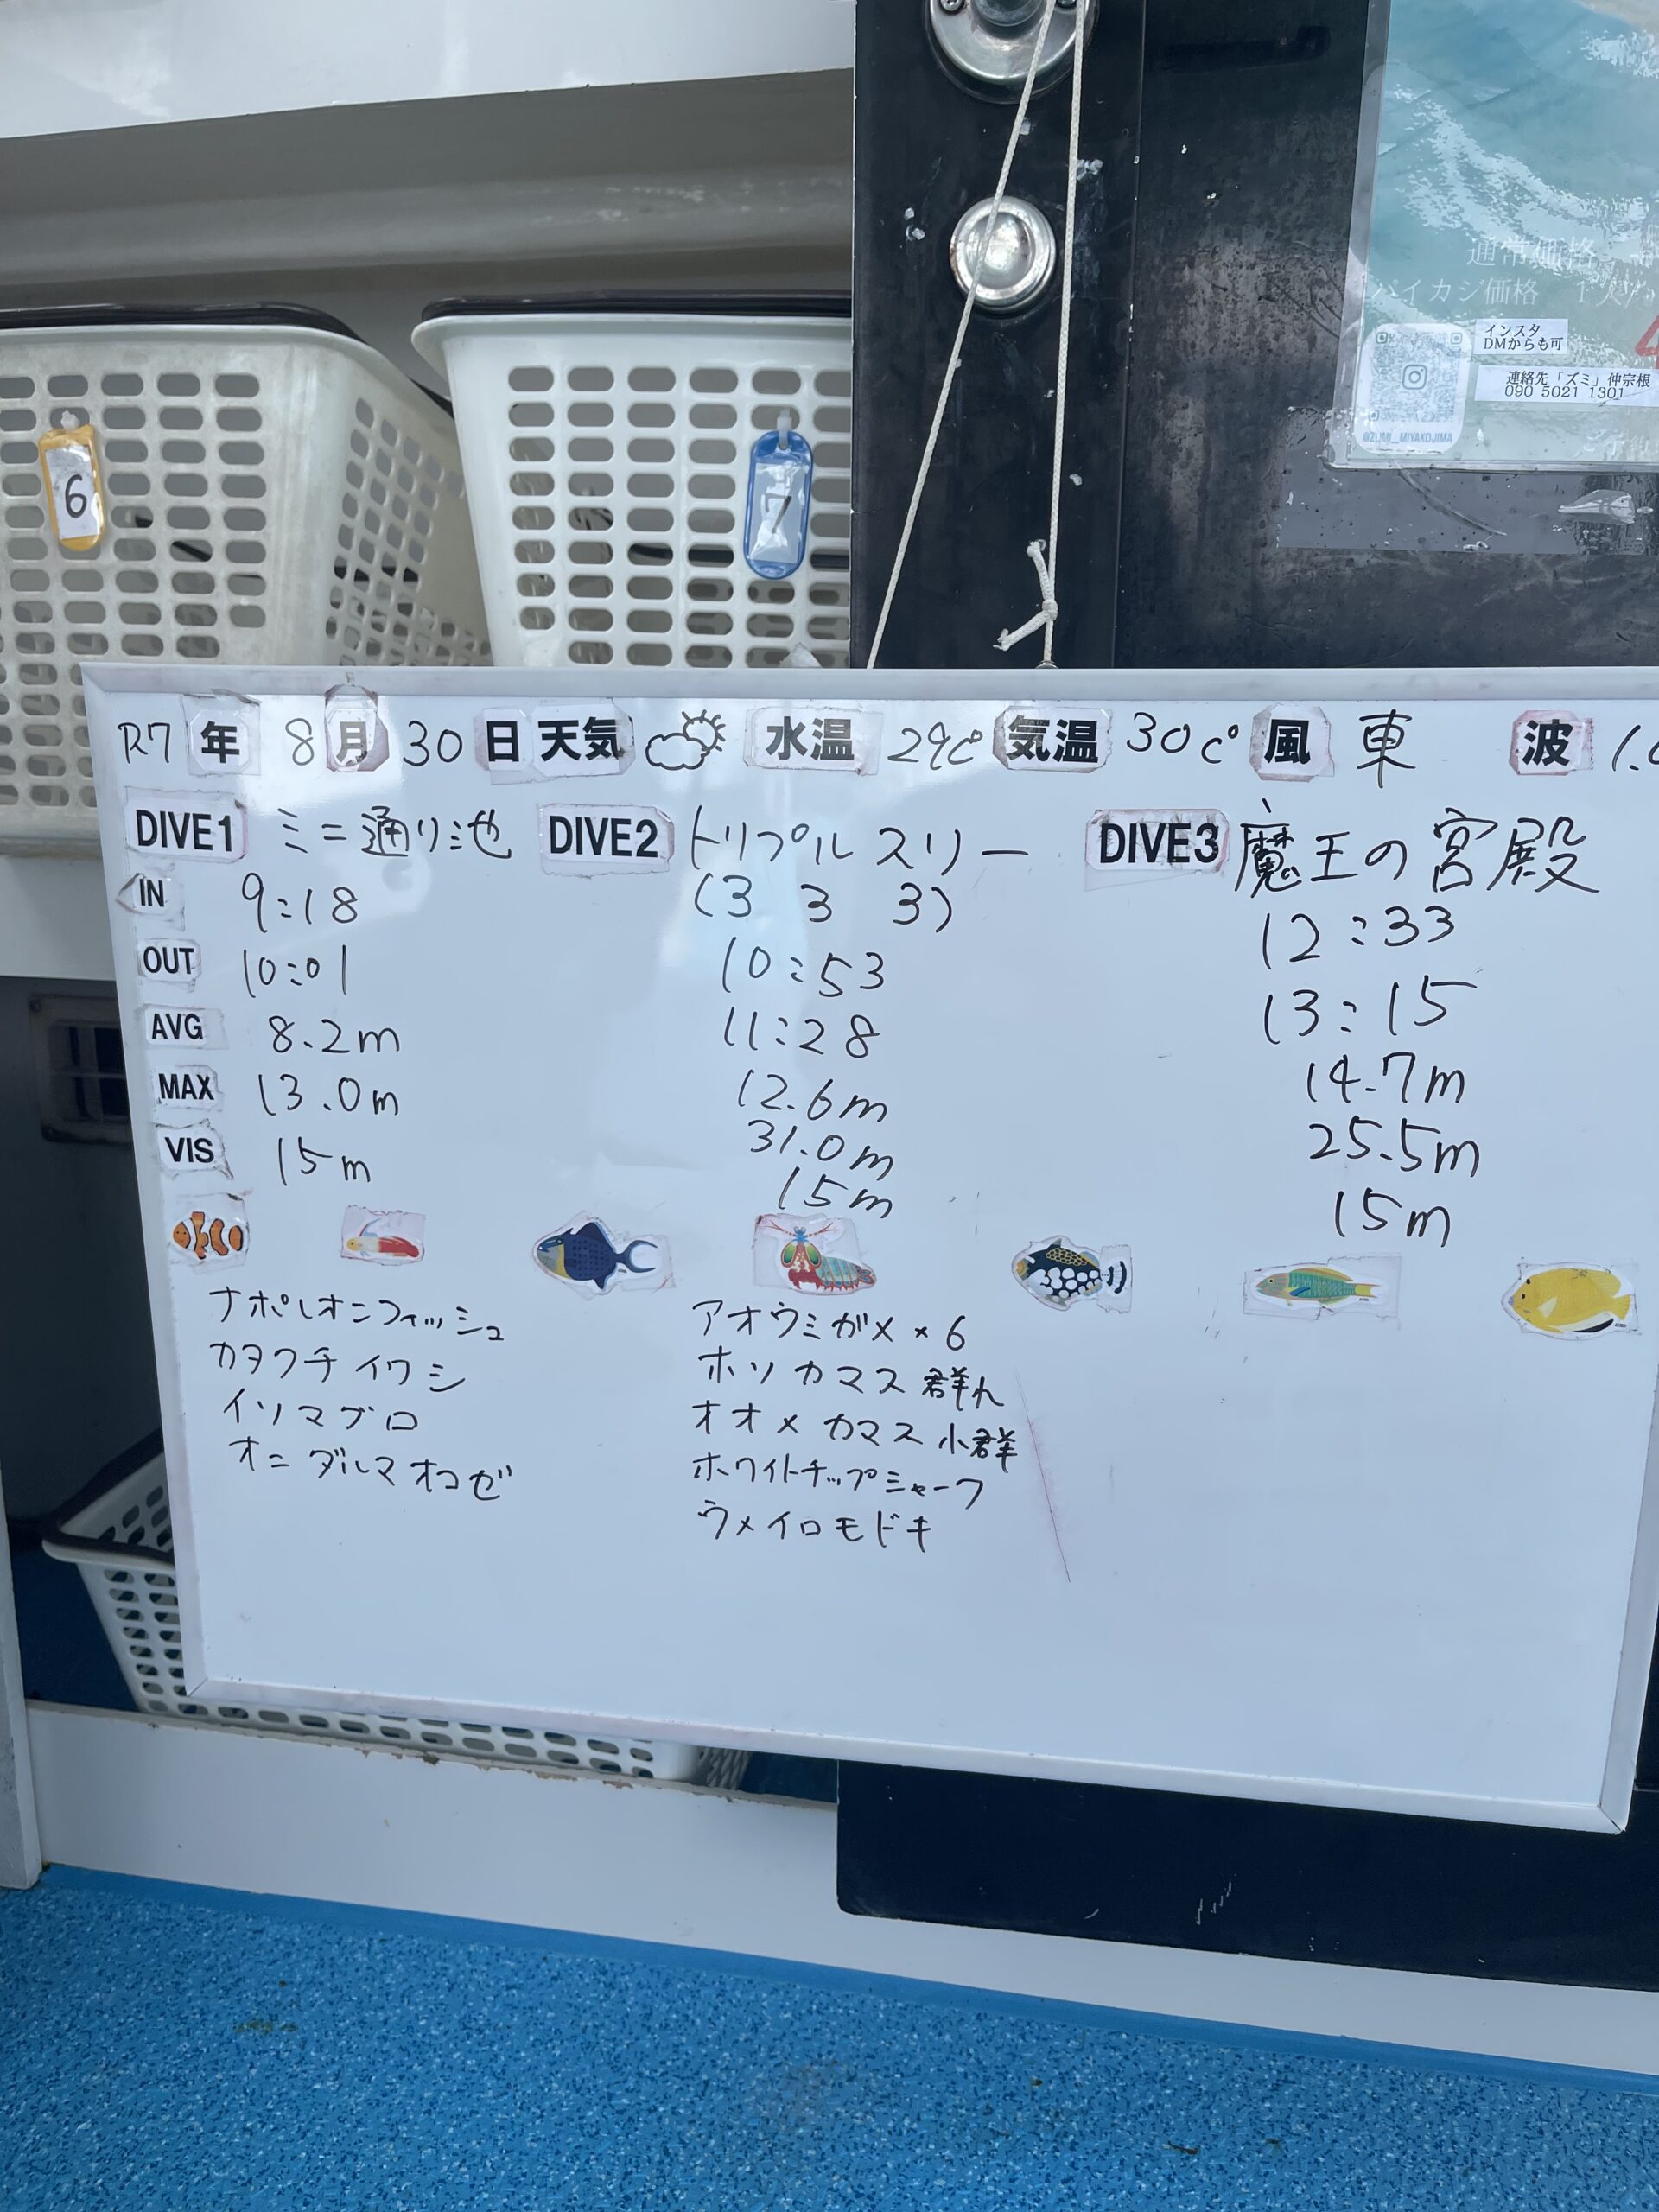 通常価格
パイカジ価格 1人
インスタ
DMからも可
連絡先「ズミ」仲宗根
090 5021 1301
@ZUMI_MIYAKOJIMA
6
7
R7 年 8 月 30 日 天気 水温 29c° 気温 30c° 風 東 波 1.
DIVE1 ミニ通り池 DIVE2 トリプルスリー DIVE3 魔王の宮殿
(3 3 3)
IN 9:18 10:53 12:33
OUT 10:01 11:28 13:15
AVG 8.2m 12.6m 14.7m
MAX 13.0m 31.0m 25.5m
VIS 15m 15m 15m
ナポレオニフィッシュ
カタクチイワシ
イソマグロ
オニダルマオコゼ
アオウミガメ×6
ホソカマス群れ
オオメカマス小群
ホワイトチップシャーク
ウメイロモドキ